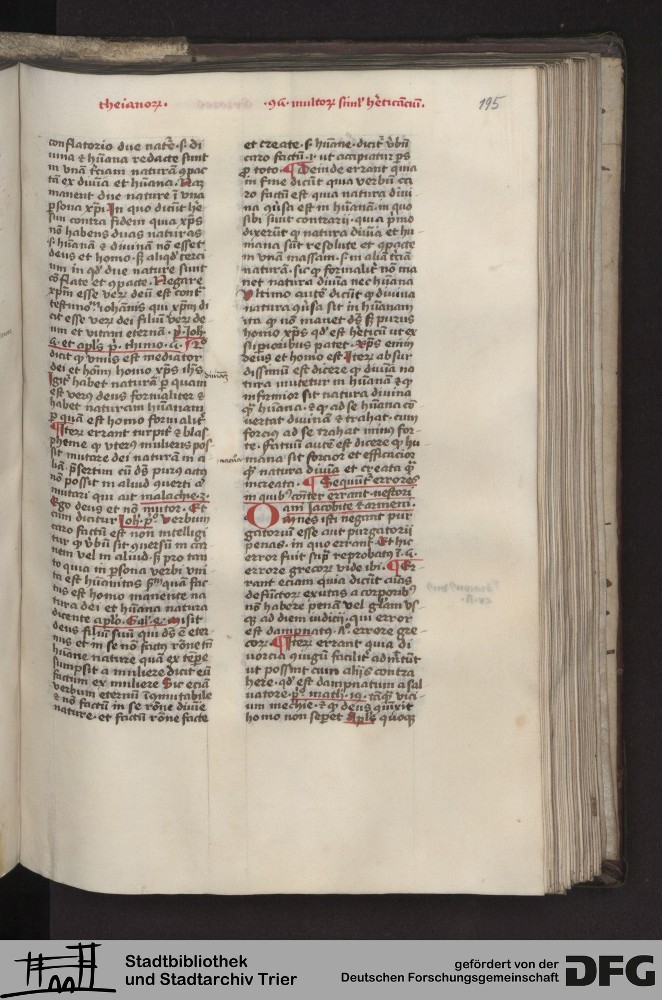 theianorꝝ. ·9ͣ· multorꝝ siml' hereticāciū. 195
conflatorio due natr̄e .s. di
uina ⁊ hūana redacte sunt
in vnā t͛ciam naturā ꝯpac
tā ex diuīa et hūana. Nā
manent due nature ī vna
ꝑsona xp̄i. In quo dicūt he
sim contra fidem quia xp̄s
nō habens duas naturas
.s. hūanā ⁊ diuinā nō esset
deus et homo. sꝫ aliqd' terci
um in qd' due nature sunt
cōflate et ꝯpacte. Negare
xp̄m esse veꝝ deū est cont͛
testimo. iohānis qui xp̄m di
cit esse veꝝ dei filiū veꝝ de
um et vitam eternā. p. Joh.
5. et apl's p. thimo. 2.
dicit ꝙ vnus est mediator
dei et hoīm homo xp̄s ih's
Igit' habet naturā ꝑ quam
est verꝰ deus formaliter ⁊
habet naturam hūanam
ꝑ quā est homo formalit'
¶ Iteꝝ errant turpit' ⁊ blas
pheme ꝙ vterꝰ mulieris pos
sit mutare dei naturā in a
liā. p̄sertim cū dꝰ purꝰ actꝰ
nō possit in aliud ꝯuerti
mutari qui ait malachie .3.
Ego deus et nō mutor. Et
cum dicitur Joh. pͦ. verbum
caro factū est non intelligi
tur ꝙ v̄bū sit ꝯuersū in car
nem vel in aliud. sꝫ pro tan
to quia in ꝑsona verbi vni
ta est hūanitas ẜm quā fac
tus est homo manente na
tura dei et hūana natura
dicente aplo. Gal. 4. misit
deus filiū suū qui dꝰ ē eter
nus et in se nō factꝰ rōne tn̄
hūane nature quā ex tp̄e
sumpsit a muliere dicit eū
factum ex muliere Sic eciā
verbum eternū īcōmutabile
⁊ nō factū in se rōne diuīe
nature. et factū rōne facte
et create .s. hūane. dicit' v̄bū
caro factū. vt accipiatur ps
ꝓ toto. ¶ Deinde errant quia
in fine dicūt quia verbū ca
ro factū est quia natura diui
na ꝯūsa est in hūanā. in quo
sibi sunt contrarii. quia pͥmo
dixerūt ꝙ natura diuīa et hu
mana sūt resolute et ꝯpacte
in vnam massam. s. in aliā t͛ciā
naturā. sic ꝙ formalit' nō ma
net natura diuīa nec hūana
Vltimo autē dicūt ꝙ diuina
natura ꝯūsa sit in hūanam
ita ꝙ nō manet dꝰ sꝫ purus
homo xp̄s qd' est h'eticū ut ex
suꝑioribus patet. xp̄s enim
deus et homo est. Iteꝝ absur
dissimū est dicere ꝙ diuīa na
tura mutetur in hūanā ⁊ ꝙ
infirmior sit natura diuina
ꝙ hūana. ⁊ ꝙ ad se hūana cō
uertat diuinā ⁊ trahat. cum
forciꝰ ad se trahat minꝰ for
te. Fatuū autē est dicere ꝙ hu
mana sit forcior et efficacior
ꝙ natura diuīa et creata ꝙ
increata. ¶ Sequūt' errores
in quibꝰ cōit' errant nestori
ani iacobite ⁊ armeni.
Omnes isti negant pur
gatoriū esse aut purgatorii
penas. in quo errant. Et hic
error fuit supͣ reprobatꝰ ī .4.
errore grecoꝝ vide ibi. ¶ Er
rant eciam quia dicūt aīas
defūctoꝝ exutas a corporibꝰ
nō habere penā vel gl'am vs
ꝙ ad diem iudicii. qui error
est dampnatꝰ. 4ͦ. errore gre
coꝝ. ¶ Iteꝝ errant quia di
uorcia ꝯiugū facilit' admittūt
ut possint cum aliis contra
here. qd' est dampnatum a sal
uatore. pͦ. math. 19. tāꝙ vici
um mechie. ⁊ ꝙ deus ꝯiūxit
homo non seꝑet Apl's quoqꝫ
diuinā
natura
Stadtbibliothek
und Stadtarchiv Trier
gefördert von der
Deutschen Forschungsgemeinschaft
DFG